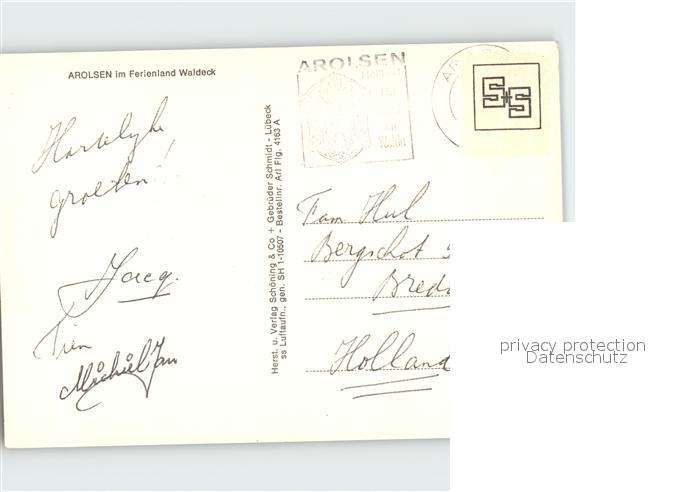 AROLSEN im Ferienland Waldeck
Hartelijke
groeten!
Jacq.
Tien
Michiel Jan
Herst. u. Verlag Schöning & Co + Gebrüder Schmidt - Lübeck
ss Luftaufn., gen. SH 1-10507 - Bestellnr. Arl Flg. 4163 A
AROLSEN
S+S
Fam Hul
Bergschot
Breda
Holland
privacy protection
Datenschutz